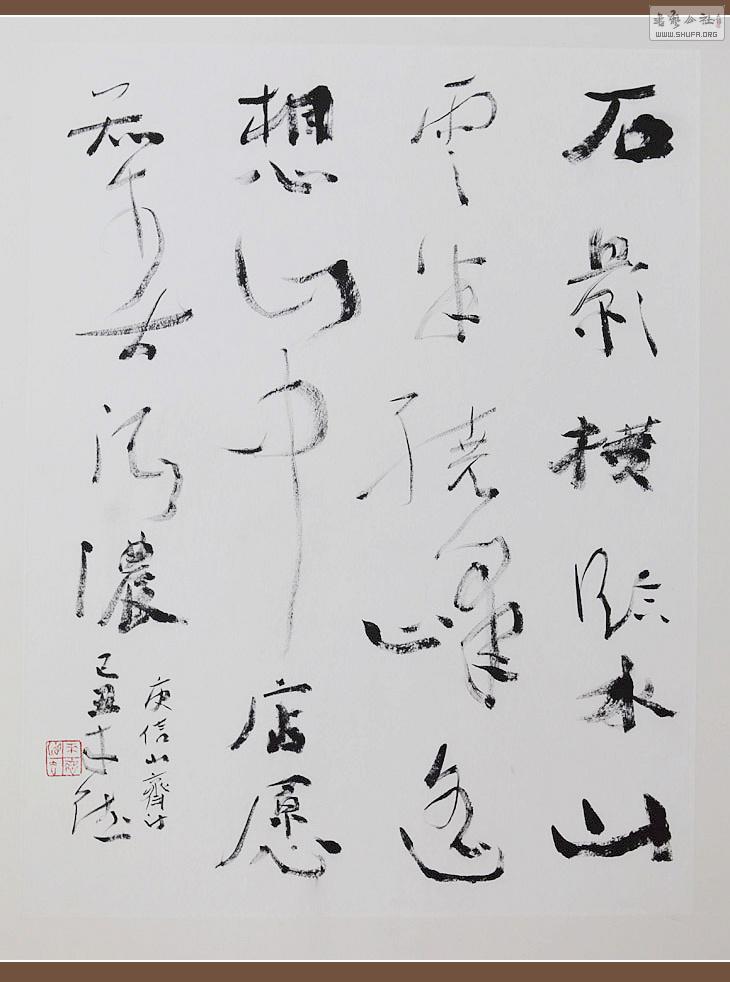 石影横临水山
雲半绕峰遥
想山中店悬
知春酒濃
庾信山齋诗
己丑
書艺公社
WWW.SHUFA.ORG